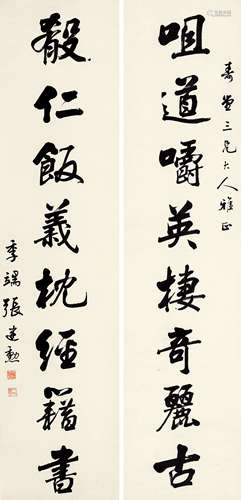 寿萱三兄大人雅正
咀道嚼英棲奇麗古
殽仁飯義枕經籍書
季端張建勳